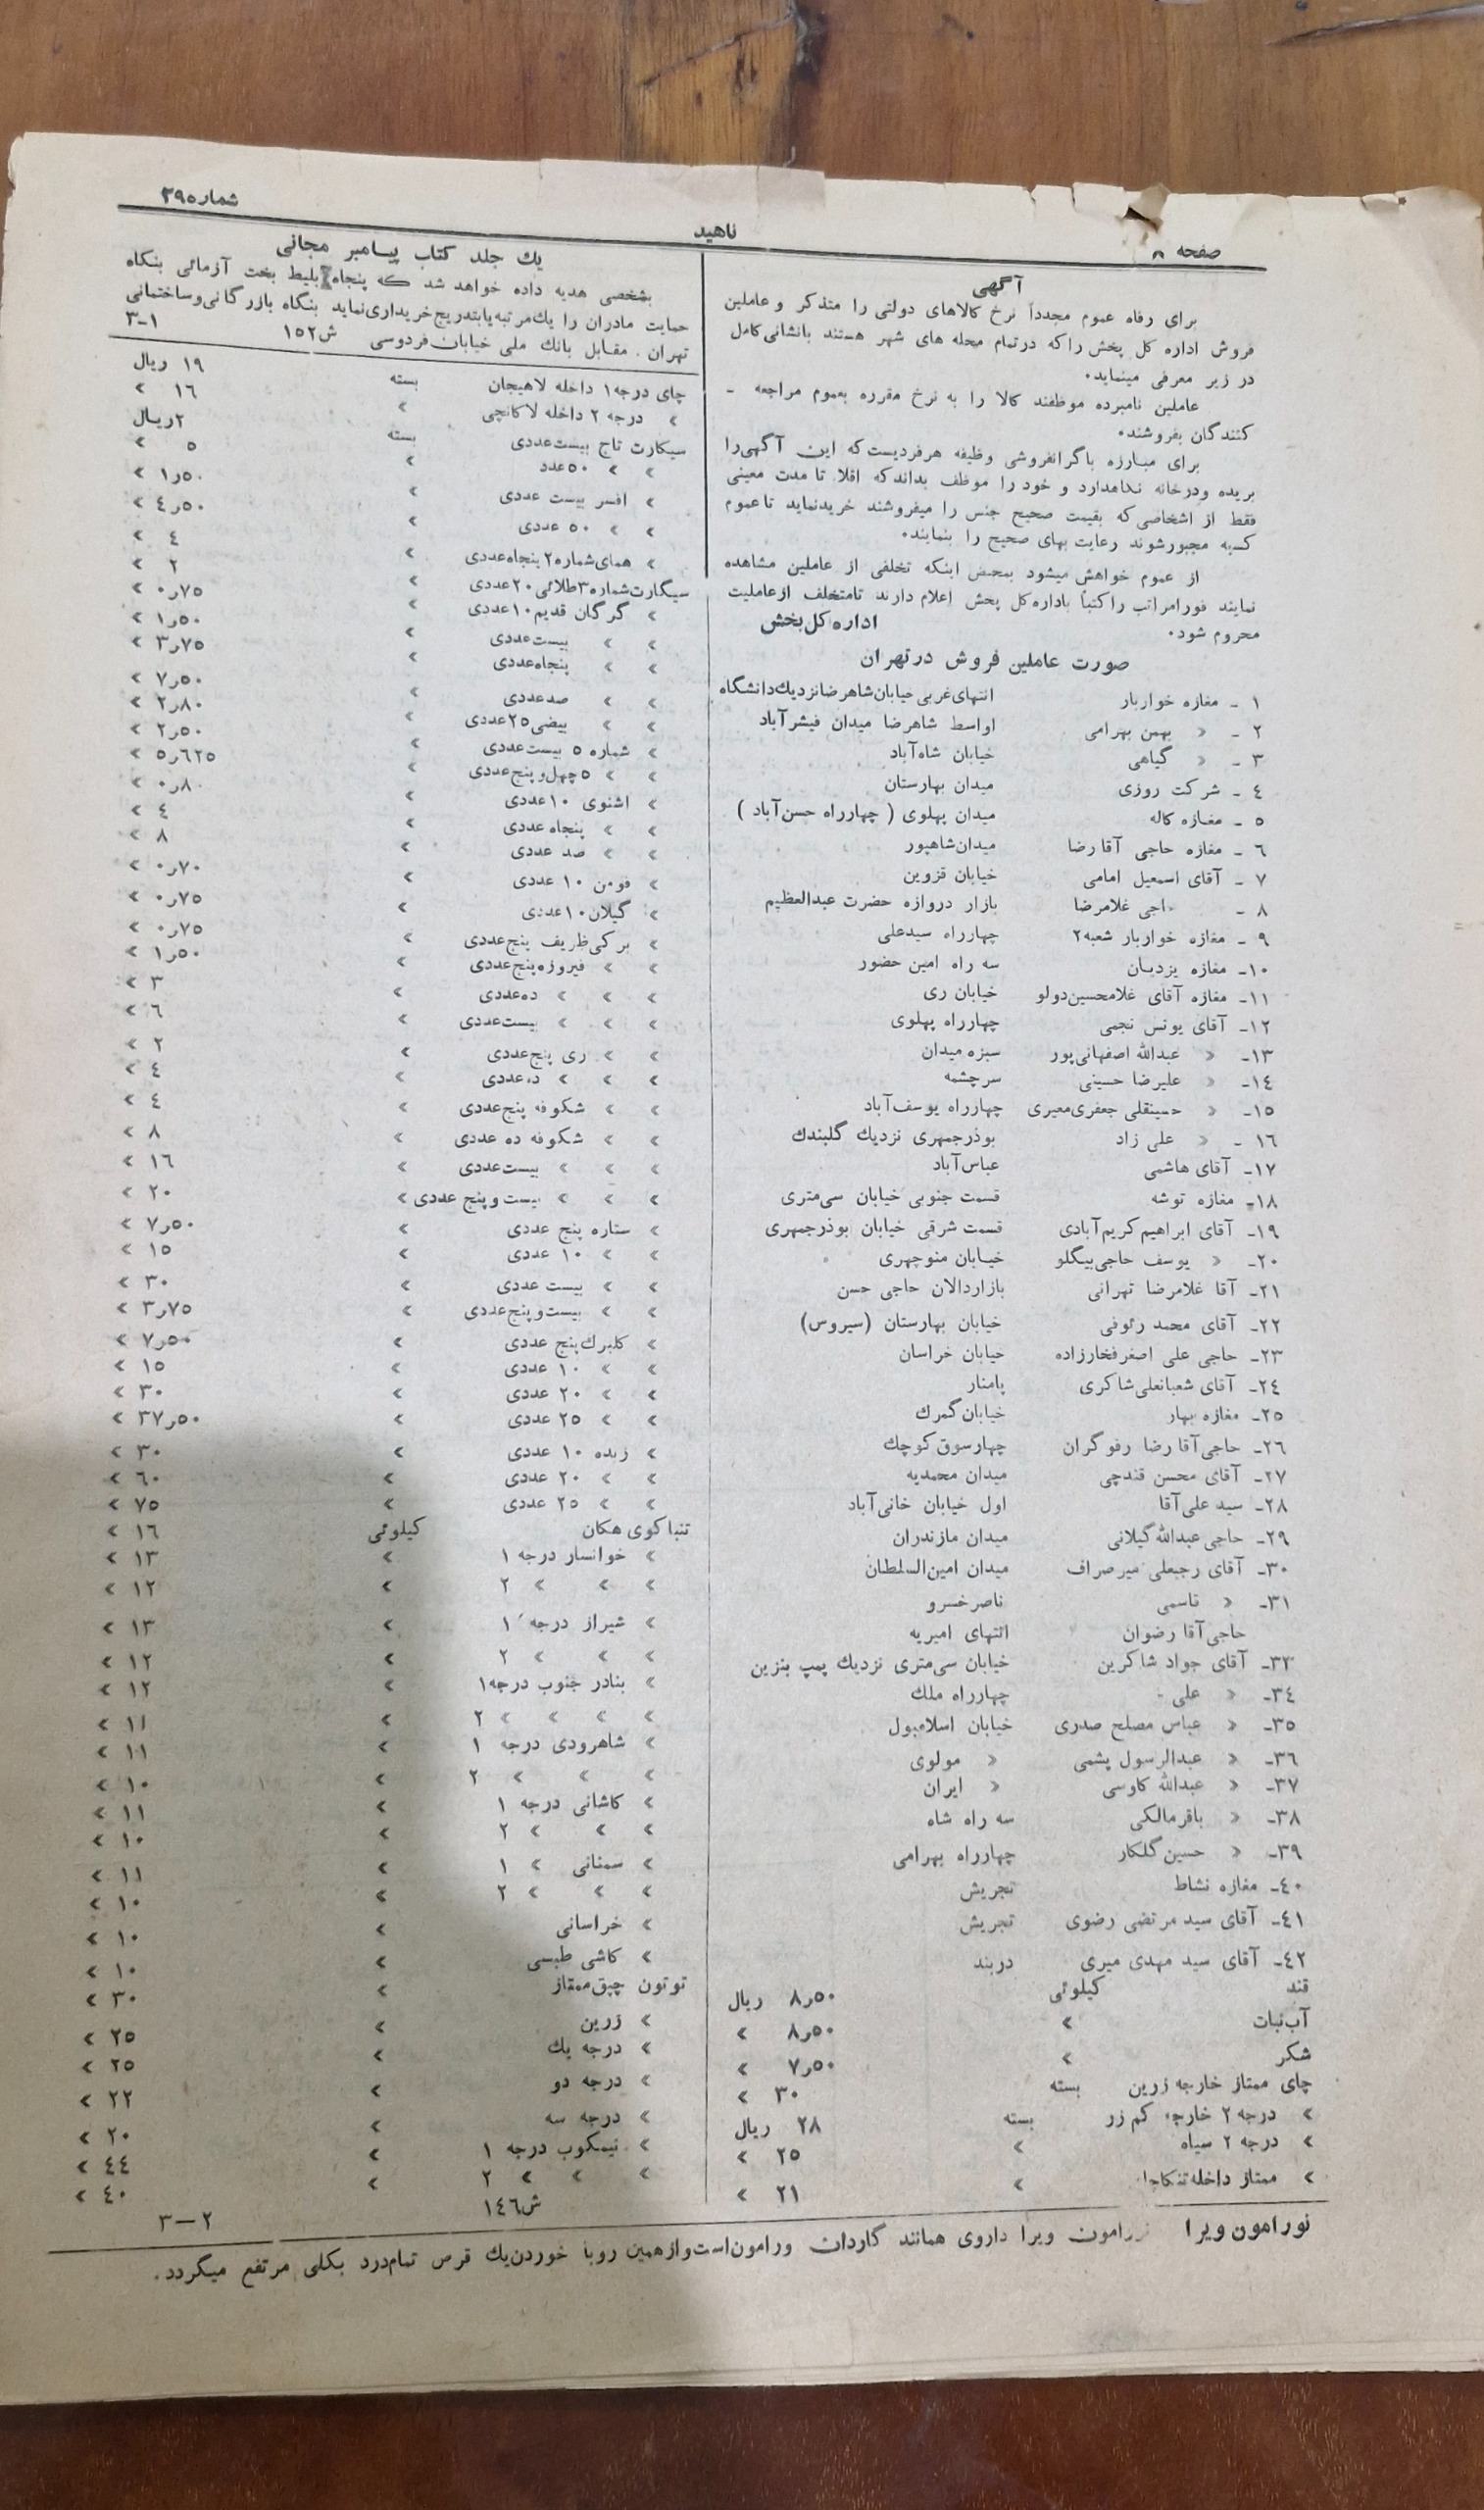 صفحه ۸
ناهید
شماره ۳۹۵
آگهی
برای رفاه عموم مجدداً نرخ کالاهای دولتی را متذکر و عاملین
فروش اداره کل پخش را که در تمام محله های شهر هستند بانشانی کامل
در زیر معرفی مینماید.
عاملین نامبرده موظفند کالا را به نرخ مقرره بعموم مراجعه -
کنندگان بفروشند.
برای مبارزه باگرانفروشی وظیفه هرفردیست که این آگهی را
بریده ودرخانه نگاهدارد و خود را موظف بداند که اقلا تا مدت معینی
فقط از اشخاصی که بقیمت صحیح جنس را میفروشند خریدنماید تا عموم
کسبه مجبورشوند رعایت بهای صحیح را بنمایند.
از عموم خواهش میشود بمحض اینکه تخلفی از عاملین مشاهده
نمایند فورا مراتب را کتباً باداره کل پخش اعلام دارند تا متخلف از عاملیت
محروم شود.
اداره کل پخش
صورت عاملین فروش در تهران
۱ - مغازه خواربار انتهای غربی خیابان شاهرضا نزدیك دانشگاه
۲ - » بهمن بهرامی اواسط شاهرضا میدان فیشر آباد
۳ - » گیاهی خیابان شاه آباد
٤ - شرکت روزی میدان بهارستان
٥ - مغازه کاله میدان پهلوی ( چهارراه حسن آباد )
٦ - مغازه حاجی آقا رضا میدان شاهپور
۷ - آقای اسمعیل امامی خیابان قزوین
۸ - اجی غلامرضا بازار دروازه حضرت عبدالعظیم
۹ - مغازه خواربار شعبه ۲ چهارراه سیدعلی
۱۰- مغازه یزدیان سه راه امین حضور
۱۱- مغازه آقای غلامحسین دولو خیابان ری
۱۲- آقای یونس نجمی چهارراه پهلوی
۱۳- » عبدالله اصفهانی پور سبزه میدان
۱٤- » علیرضا حسینی سرچشمه
۱٥- » حسینقلی جعفری معیری چهارراه یوسف آباد
۱٦ - » علی زاد بوذرجمهری نزدیك گلبندك
۱۷- آقای هاشمی عباس آباد
۱۸- مغازه توشه قسمت جنوبی خیابان سی متری
۱۹- آقای ابراهیم کریم آبادی قسمت شرقی خیابان بوذرجمهری
۲۰- » یوسف حاجی بیگلو خیابان منوچهری
۲۱- آقا غلامرضا تهرانی بازار دالان حاجی حسن
۲۲- آقای محمد رئوفی خیابان بهارستان (سیروس)
۲۳- حاجی علی اصغر فخارزاده خیابان خراسان
۲٤- آقای شعبانعلی شاکری پامنار
۲٥- مغازه بهار خیابان گمرك
۲٦- حاجی آقا رضا رفوگران چهارسوق کوچك
۲۷- آقای محسن قندچی میدان محمدیه
۲۸- سید علی آقا اول خیابان خانی آباد
۲۹- حاجی عبدالله گیلانی میدان مازندران
۳۰- آقای رجبعلی میرصراف میدان امین السلطان
۳۱- » قاسمی ناصرخسرو
حاجی آقا رضوان انتهای امیریه
۳۳- آقای جواد شاکرین خیابان سی متری نزدیك پمپ بنزین
۳٤- » علی - چهارراه ملك
۳٥- » عباس مصلح صدری خیابان اسلامبول
۳٦- » عبدالرسول پشمی » مولوی
۳۷- » عبدالله کاوسی » ایران
۳۸- » باقر مالکی سه راه شاه
۳۹- » حسین گلکار چهارراه بهرامی
٤۰- مغازه نشاط تجریش
٤۱- آقای سید مرتضی رضوی تجریش
٤۲- آقای سید مهدی میری دربند
قند کیلوئی ۸٫۵۰ ریال
آب نبات » ۸٫۵۰ »
شکر » ۷٫۵۰ »
چای ممتاز خارجه زرین بسته ۳۰ »
» درجه ۲ خارجه کم زر بسته ۲۸ ریال
» درجه ۲ سیاه » ۲۵ »
» ممتاز داخله » ۲۱ »
یك جلد کتاب پیامبر مجانی
بشخصی هدیه داده خواهد شد که پنجاه بلیط بخت آزمائی بنگاه
حمایت مادران را یك مرتبه یا بتدریج خریداری نماید بنگاه بازرگانی و ساختمانی
تهران . مقابل بانك ملی خیابان فردوسی ش ۱۵۲ ۳-۱
چای درجه ۱ داخله لاهیجان بسته ۱۹ ریال
» درجه ۲ داخله لاکانچی » ۱٦ »
سیگارت تاج بیست عددی بسته ۲ ریال
» » ۵۰ عدد » ۵ »
» افسر بیست عددی » ۱٫۵۰ »
» » ۵۰ عددی » ٤٫۵۰ »
» همای شماره ۲ پنجاه عددی » ٤ »
سیگارت شماره ۳ طلائی ۲۰ عددی » ۲ »
» گرگان قدیم ۱۰ عددی » ۰٫۷۵ »
» » بیست عددی » ۱٫۵۰ »
» » پنجاه عددی » ۳٫۷۵ »
» » صد عددی » ۷٫۵۰ »
» » بیضی ۲۵ عددی » ۲٫۸۰ »
» شماره ۵ بیست عددی » ۲٫۵۰ »
» » ۵ چهل و پنج عددی » ۵٫٦۲۵ »
» اشنوی ۱۰ عددی » ۰٫۸۰ »
» » پنجاه عددی » ٤ »
» » صد عددی » ۸ »
» فومن ۱۰ عددی » ۰٫۷۰ »
» گیلان ۱۰ عددی » ۰٫۷۵ »
» برگی ظریف پنج عددی » ۰٫۷۵ »
» » فیروزه پنج عددی » ۱٫۵۰ »
» » » ده عددی » ۳ »
» » » بیست عددی » ٦ »
» » ری پنج عددی » ۲ »
» » » ده عددی » ٤ »
» » شکوفه پنج عددی » ٤ »
» » شکوفه ده عددی » ۸ »
» » » بیست عددی » ۱٦ »
» » » بیست و پنج عددی » ۲۰ »
» ستاره پنج عددی » ۷٫۵۰ »
» » ۱۰ عددی » ۱۵ »
» » بیست عددی » ۳۰ »
» » بیست و پنج عددی » ۳٫۷۵ »
» گلبرك پنج عددی » ۷٫۵۰ »
» » ۱۰ عددی » ۱۵ »
» » ۲۰ عددی » ۳۰ »
» » ۲۵ عددی » ۳۷٫۵۰ »
» زبده ۱۰ عددی » ۳۰ »
» » ۲۰ عددی » ٦۰ »
» » ۲۵ عددی » ۷۵ »
تنباکوی هکان کیلوئی ۱٦ »
» خوانسار درجه ۱ » ۱۳ »
» » » ۲ » ۱۲ »
» شیراز درجه ۱ » ۱۳ »
» » » ۲ » ۱۲ »
» بنادر جنوب درجه ۱ » ۱۲ »
» » » » ۲ » ۱۱ »
» شاهرودی درجه ۱ » ۱۱ »
» » » ۲ » ۱۰ »
» کاشانی درجه ۱ » ۱۱ »
» » » ۲ » ۱۰ »
» سمنانی » ۱ » ۱۱ »
» » » ۲ » ۱۰ »
» خراسانی » ۱۰ »
» کاشی طبسی » ۱۰ »
توتون چپق ممتاز » ۳۰ »
» زرین » ۲۵ »
» درجه یك » ۲۵ »
» درجه دو » ۲۲ »
» درجه سه » ۲۰ »
» نیمکوب درجه ۱ » ٤٤ »
» » » ۲ » ٤۰ »
ش ۱٤٦ ۳—۲
نورامون ویرا نورامون ویرا داروی همانند گاردان ورامون است و از همین رو با خوردن یك قرص تمام درد بکلی مرتفع میگردد.